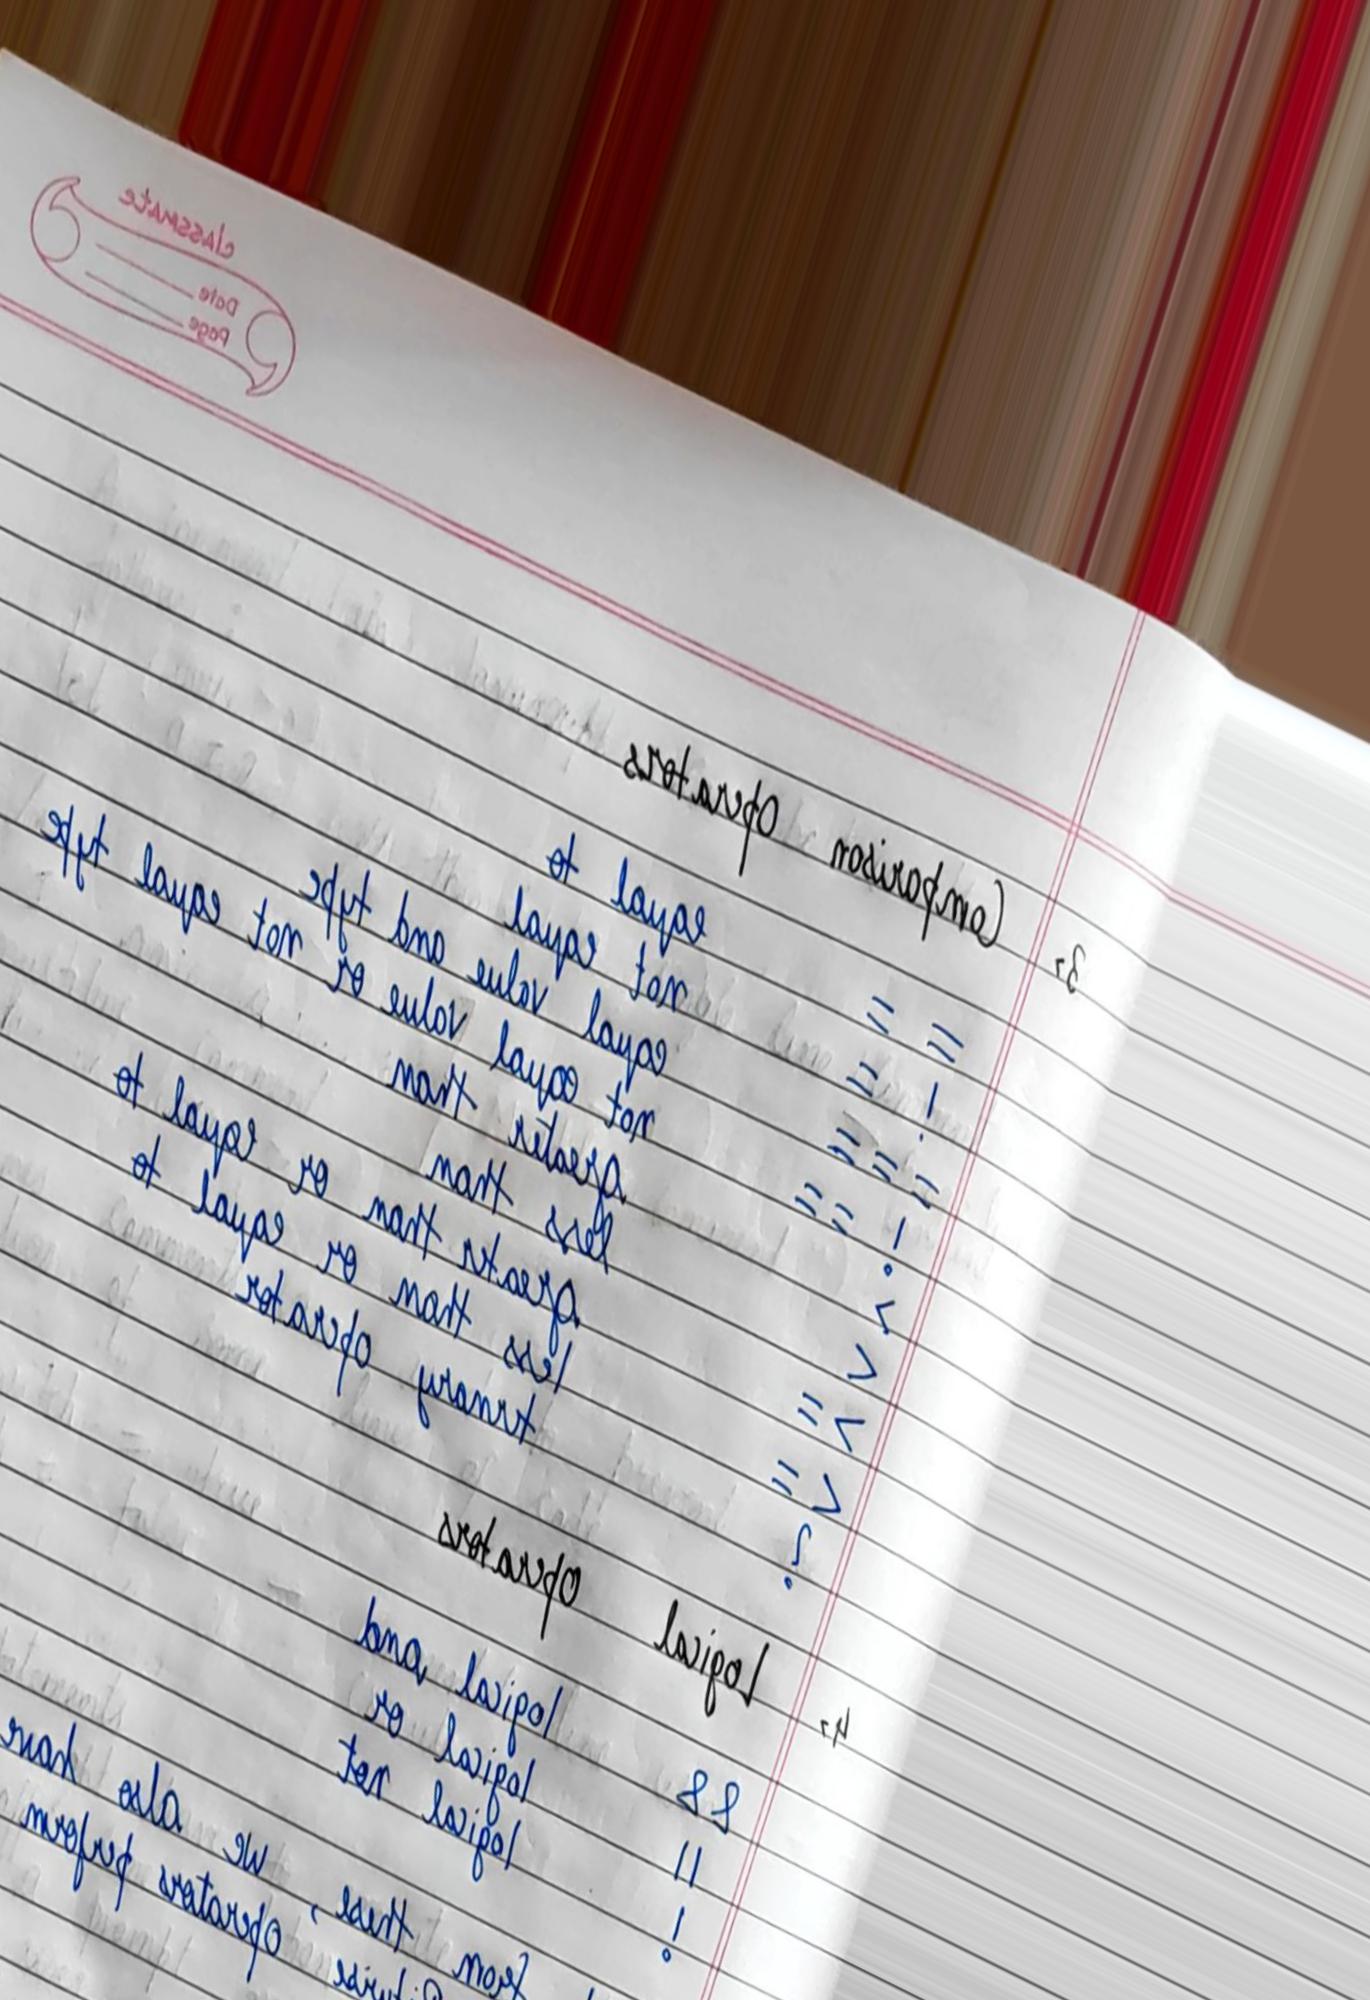 classmate
Date
Page
3→ Comparison Operators
== equal to
!= not equal
=== equal value and type
!== not equal value or not equal type
> greater than
< less than
>= greater than or equal to
<= less than or equal to
? ternary operator
4→ Logical Operators
&& logical and
|| logical or
! logical not
from these, we also have
Bitwise operators perform